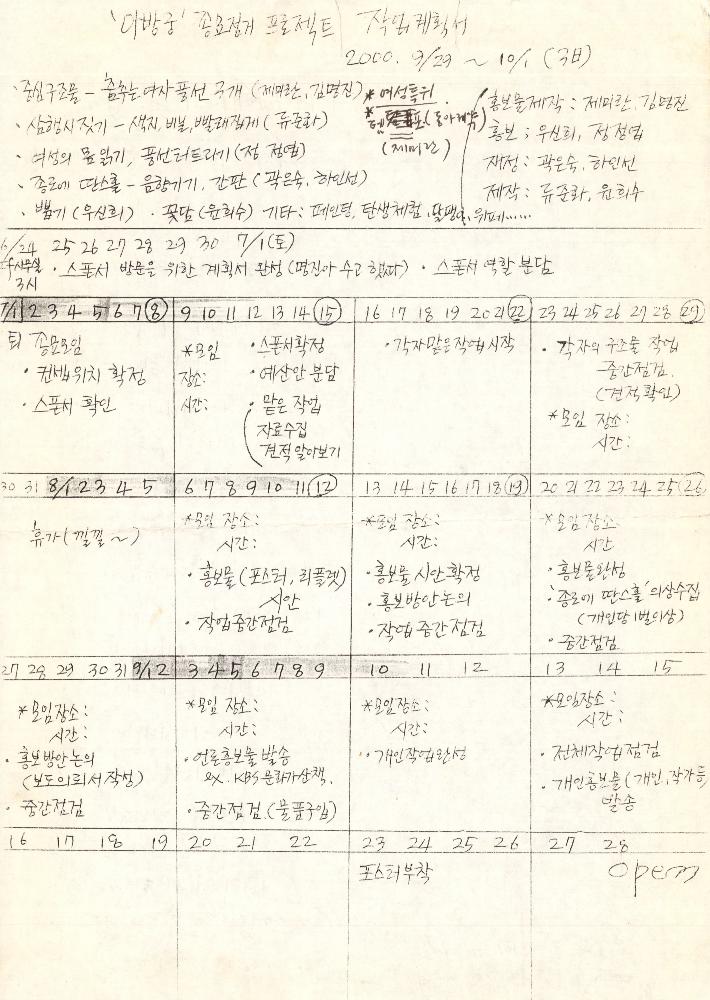 '아방궁' 종묘점거 프로젝트 작업계획서
2000. 9/29 ~ 10/1 (3日)
· 중심구조물 - 춤추는 여자 풍선 9개 (제미란, 김명진)
* 여성특위
· 삼행시짓기 - 색지, 비닐, 빨래집게 (류준화)
(제미란)
· 여성의 몸 읽기, 풍선터트리기 (정 정엽)
· 종로에 딴스홀 - 음향기기, 간판 (곽은숙, 하인선)
· 뽑기 (우신희) · 꽃담 (윤희수) 기타 : 페인팅, 탄생체험, 위패......
홍보물제작 : 제미란, 김명진
홍보 : 우신희, 정정엽
재정 : 곽은숙, 하인선
제작 : 류준화, 윤희수
6/24 25 26 27 28 29 30 7/1(토)
사무실 3시
· 스폰서 방문을 위한 계획서 완성 (명진아 수고했따) · 스폰서 역할 분담
7/1 2 3 4 5 6 7 8
종묘모임
· 컨셉, 위치 확정
· 스폰서 확인
9 10 11 12 13 14 15
*모임
장소:
시간:
· 스폰서확정
· 예산안 분담
· 맡은 작업
자료수집
견적 알아보기
16 17 18 19 20 21 22
· 각자맡은작업시작
23 24 25 26 27 28 29
· 각자의 구조물 작업
-중간점검.
(견적확인)
*모임 장소:
시간:
30 31 8/1 2 3 4 5
휴가 (낄낄~)
6 7 8 9 10 11 12
*모임 장소:
시간:
· 홍보물 (포스터, 리플렛)
시안
· 작업중간점검
13 14 15 16 17 18 19
*모임 장소:
시간:
· 홍보물 시안확정
· 홍보방안논의
· 작업 중간점검
20 21 22 23 24 25 26
*모임장소:
시간
· 홍보물완성
· '종로에 딴스홀' 의상수집
(개인당 1벌이상)
· 중간점검
27 28 29 30 31 9/1 2
*모임장소:
시간:
· 홍보방안논의
(보도의뢰서작성)
· 중간점검
3 4 5 6 7 8 9
*모임 장소:
시간:
· 언론홍보물 발송
ex. KBS 문화가산책.
· 중간점검. (물품구입)
10 11 12
*모임장소:
시간:
· 개인작업완성
13 14 15
*모임장소:
시간:
· 전체작업점검
· 개인홍보물 (개인, 작가등)
발송
16 17 18 19
20 21 22
23 24 25 26
포스터부착
27 28
open